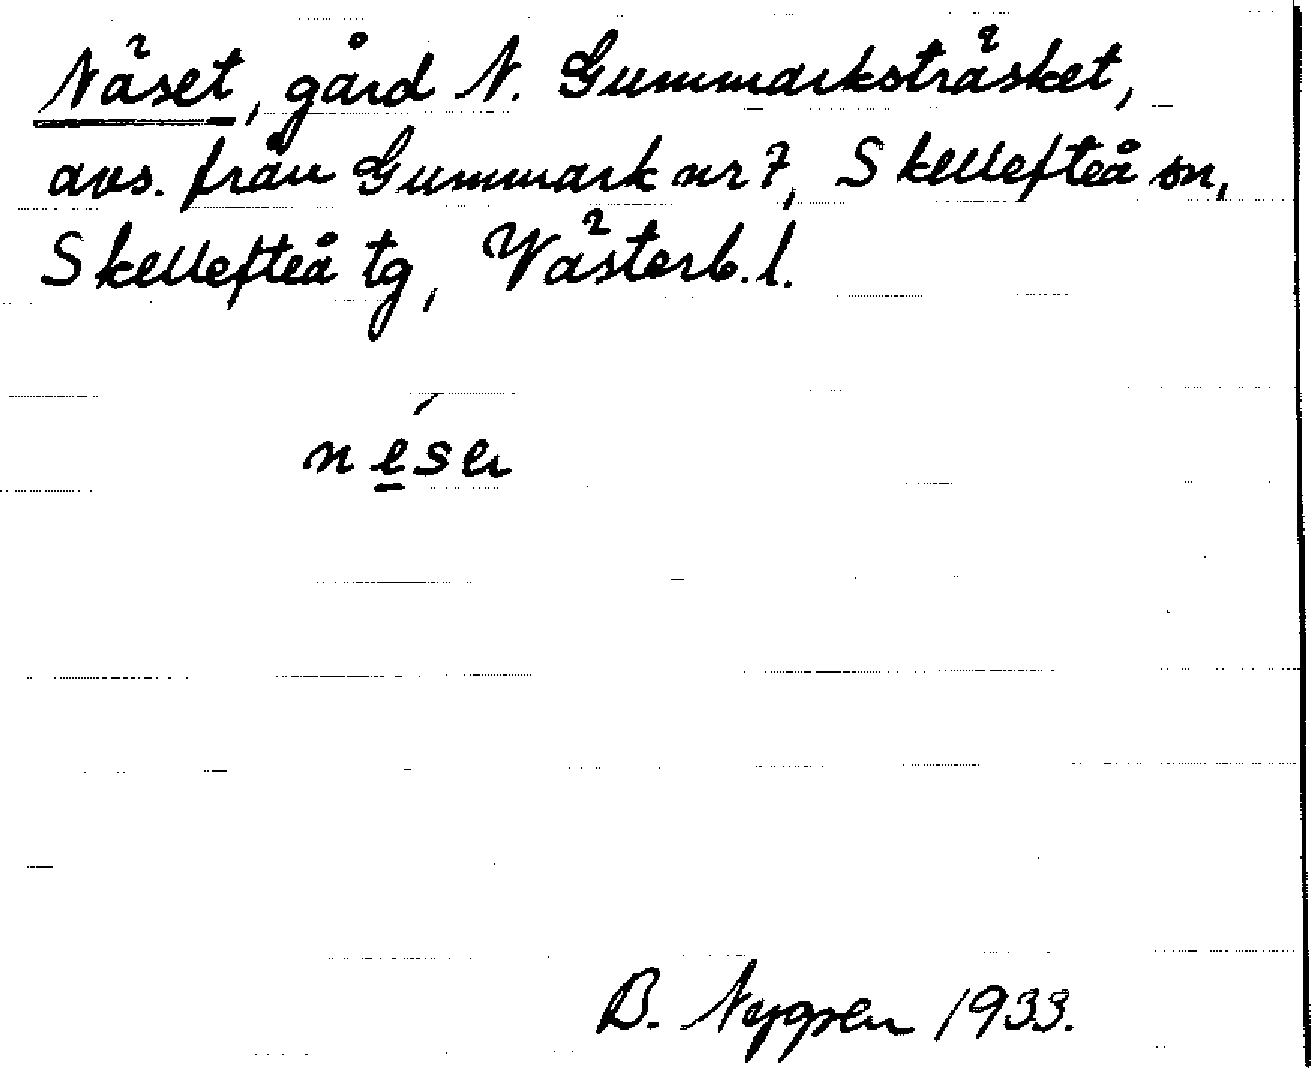 Näset, gård N. Gummarksträsket,
avs. från Gummark nr 7, Skellefteå sn,
Skellefteå tg, Västerb. l.
né̱sen
B. Nygren 1933.